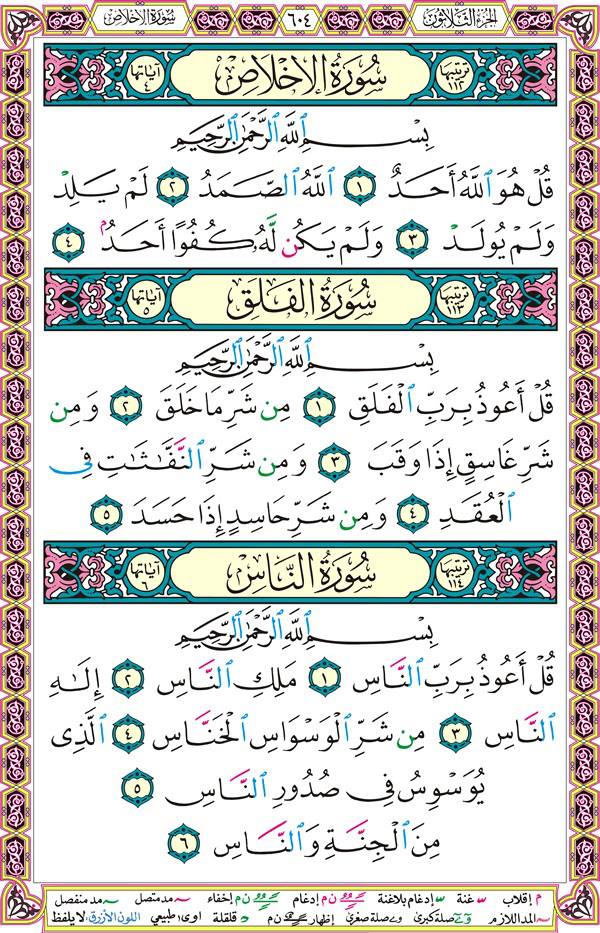 الجزء الثلاثون ٦٠٤ سورة الإخلاص
ترتيبها ١١٢ سُورَةُ الإِخْلَاصِ آياتها ٤
بِسْمِ ٱللَّهِ ٱلرَّحْمَٰنِ ٱلرَّحِيمِ
قُلْ هُوَ ٱللَّهُ أَحَدٌ ١ ٱللَّهُ ٱلصَّمَدُ ٢ لَمْ يَلِدْ
وَلَمْ يُولَدْ ٣ وَلَمْ يَكُن لَّهُۥ كُفُوًا أَحَدٌۢ ٤
ترتيبها ١١٣ سُورَةُ الفَلَقِ آياتها ٥
بِسْمِ ٱللَّهِ ٱلرَّحْمَٰنِ ٱلرَّحِيمِ
قُلْ أَعُوذُ بِرَبِّ ٱلْفَلَقِ ١ مِن شَرِّ مَا خَلَقَ ٢ وَمِن
شَرِّ غَاسِقٍ إِذَا وَقَبَ ٣ وَمِن شَرِّ ٱلنَّفَّٰثَٰتِ فِى
ٱلْعُقَدِ ٤ وَمِن شَرِّ حَاسِدٍ إِذَا حَسَدَ ٥
ترتيبها ١١٤ سُورَةُ النَّاسِ آياتها ٦
بِسْمِ ٱللَّهِ ٱلرَّحْمَٰنِ ٱلرَّحِيمِ
قُلْ أَعُوذُ بِرَبِّ ٱلنَّاسِ ١ مَلِكِ ٱلنَّاسِ ٢ إِلَٰهِ
ٱلنَّاسِ ٣ مِن شَرِّ ٱلْوَسْوَاسِ ٱلْخَنَّاسِ ٤ ٱلَّذِى
يُوَسْوِسُ فِى صُدُورِ ٱلنَّاسِ ٥
مِنَ ٱلْجِنَّةِ وَٱلنَّاسِ ٦
م إقلاب غنة إدغام بلاغنة ن م إدغام ن م إخفاء مد متصل مد منفصل
المد اللازم صلة كبرى صلة صغرى إظهار ن م قلقلة اوى: طبيعي اللون الأزرق: لا يلفظ